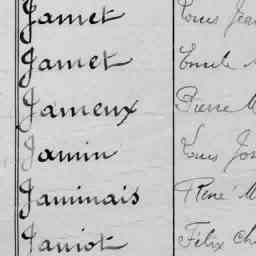 Jamet Louis Jean
Jamet Emile
Jameux Pierre M
Jamin Louis Jos
Jaminais René M
Jamiot Félix Ch